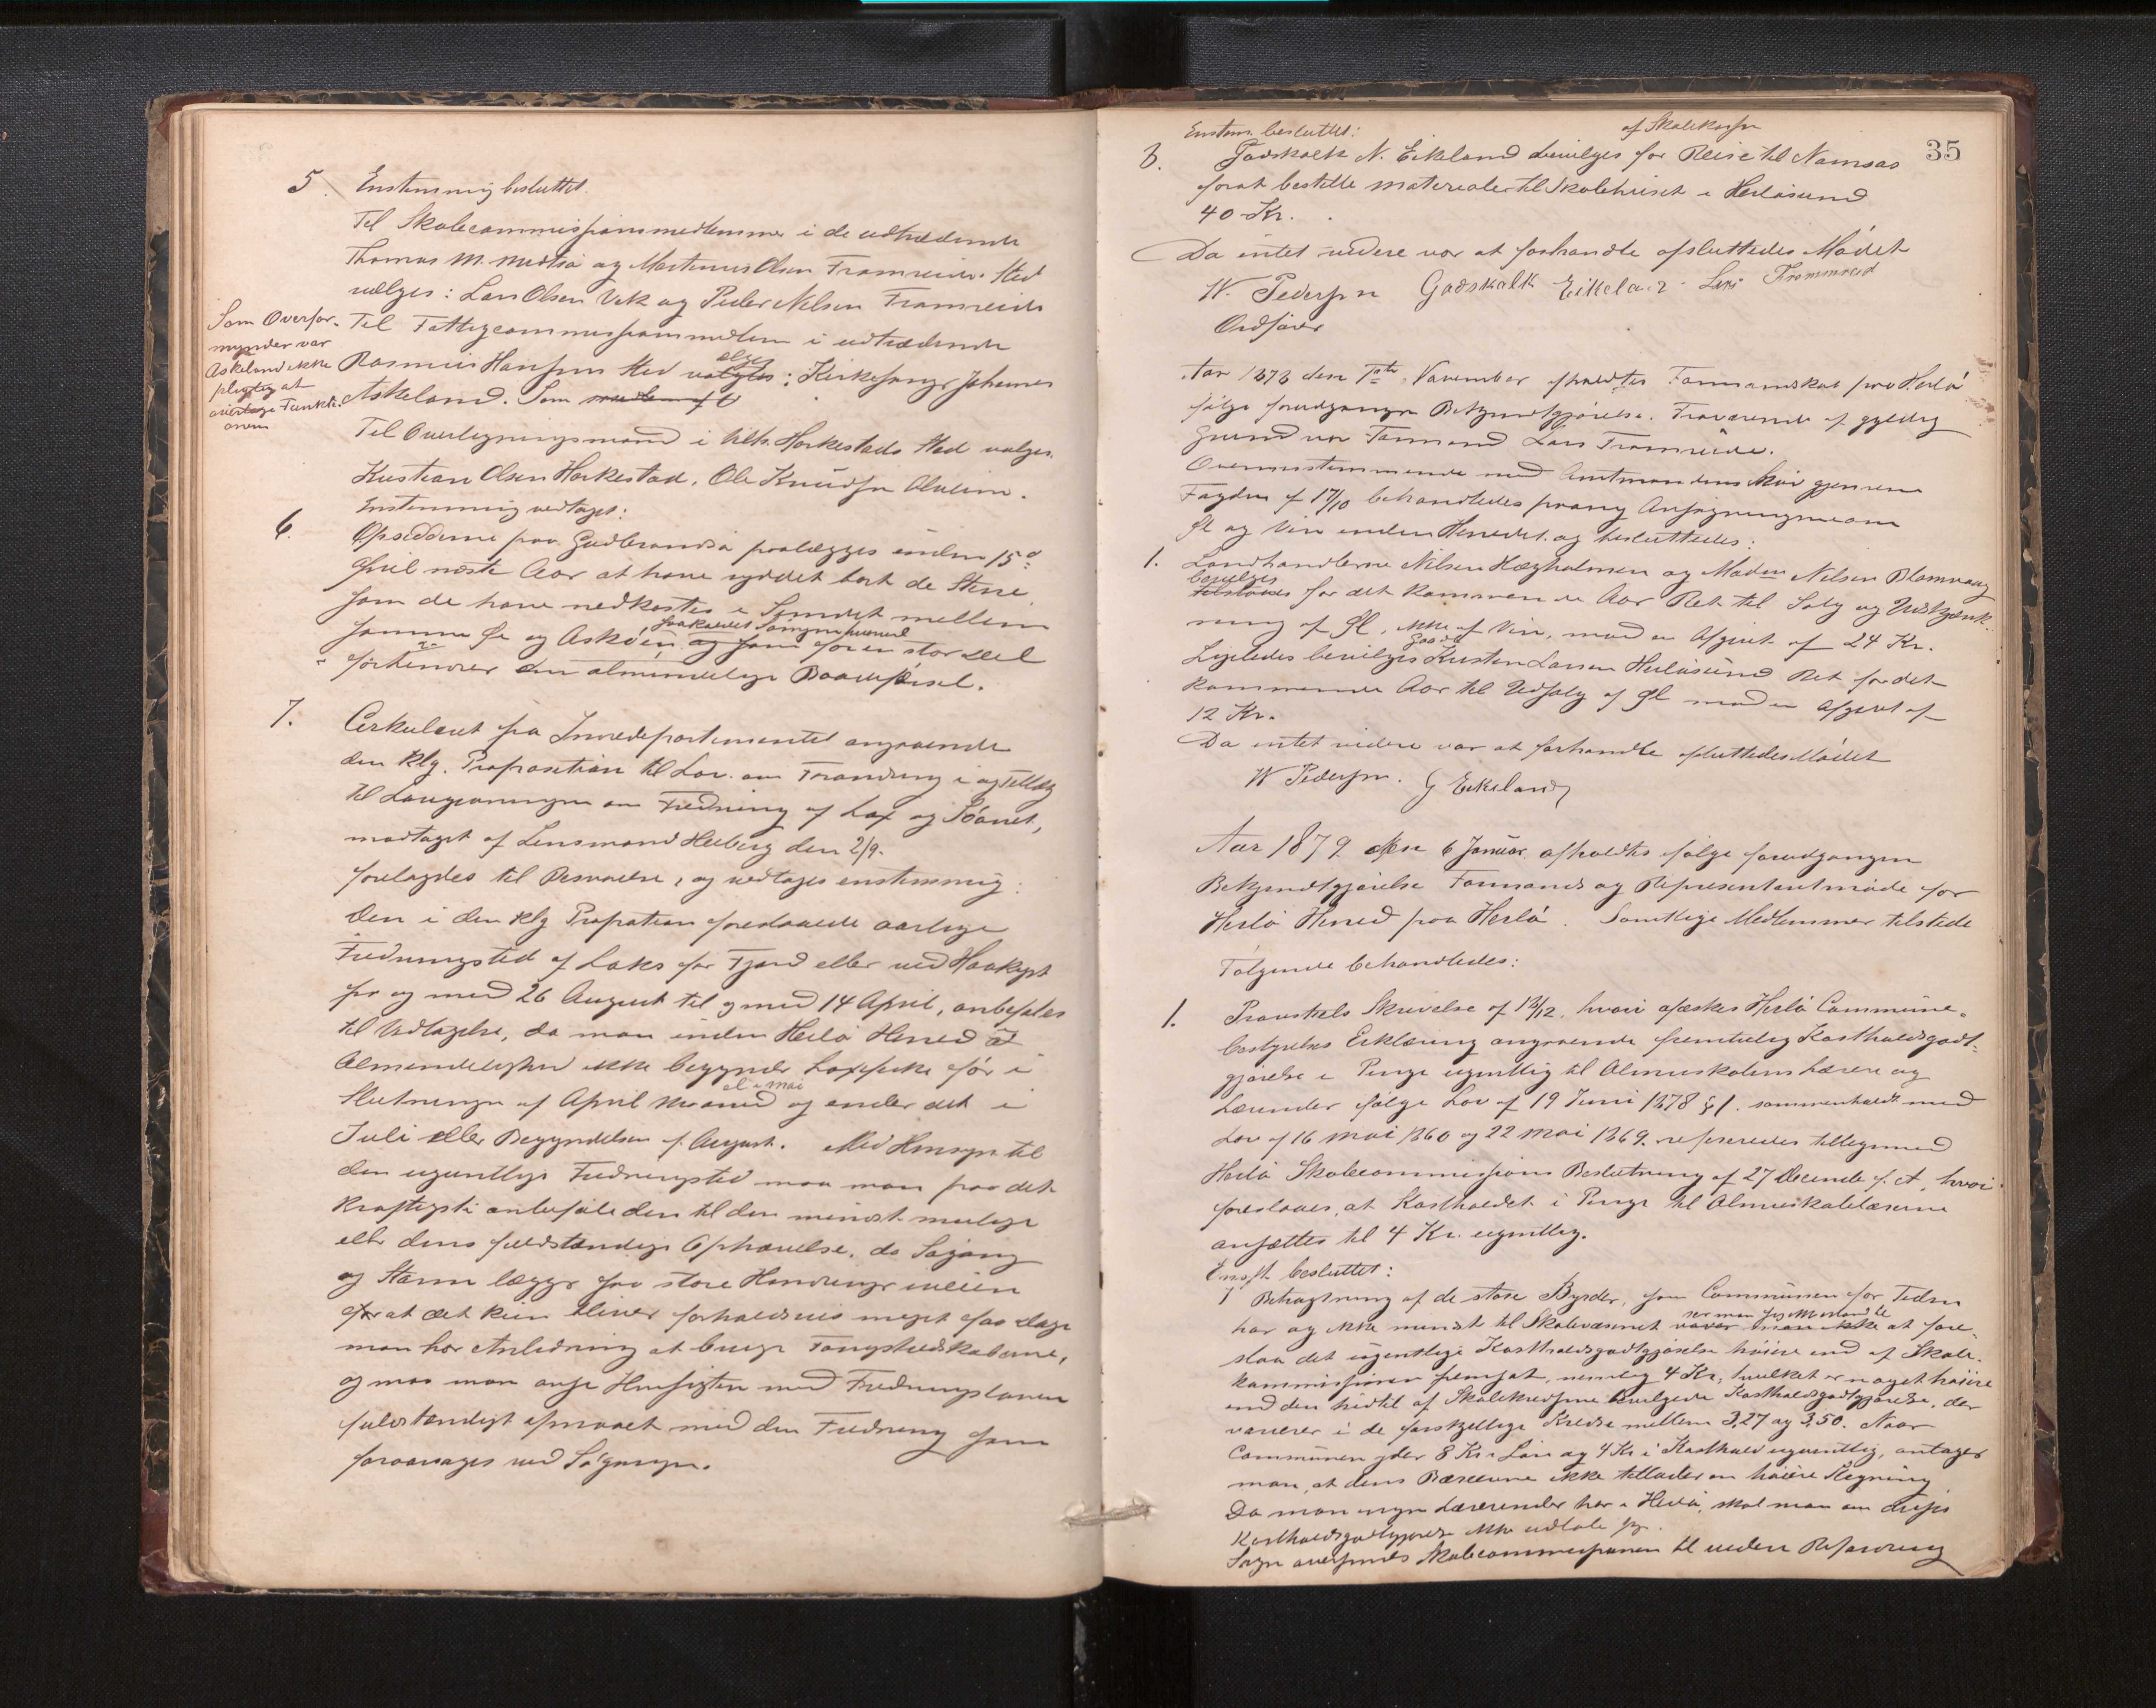 5. Enstemmig besluttet.
Til Skolecommissionsmedlemmer i de udtrædende
Thomas M. Mudtsø og Martinus Olsen Framreides Sted
vælges: Lars Olsen Vik og Peder Nilsen Framreide
Til Fattigcommissionsmedlem i udtrædende
Rasmus Hansens Sted vælges: Kirkesanger Johannes
Askeland. Som
Som Overfor-
mynder var
Askeland ikke
pligtig at
overtage Funkti-
onen
Til Overligningsmand i Horkestads Sted vælges
Kristian Olsen Horkestad, Ole Knudsen Alveim.
Enstemmig vedtaget:
6. Opsidderne paa Gudbrandsø paalægges inden 15d
April næste Aar at have ryddet bort de Stene
som de have nedkastet i Sundet mellem
samme Ø og Askøen, og som for en stor Deel
forhindrer den almindelige Baadfærsel.
7. Cirkulæret fra Indredepartementet angaaende
den klg. Proposition til Lov om Forandring i og Tillæg
til Lovgivningen om Fredning af Lax og Søørret,
modtaget af Lensmand Heiberg den 2/9.
forelagdes til Besvarelse, og vedtoges enstemmig:
Den i den klg Propotion foreslaaede aarlige
Fredningstid af Laks for Fjord eller ved Havkyst
fra og med 26 August til og med 14 April, anbefales
til Vedtagelse, da man inden Herlø Herred i
Almindelighed ikke begynder Laxfiske før i
Slutningen af April Maaned el i Mai og ender det i
Juli eller Begyndelsen af August. Med Hensyn til
den ugentlige Fredningstid maa man paa det
kraftigste anbefale den til den mindst mulige
eller dens fuldstændige Ophævelse, da Søgang
og Storm lægger saa store Hindringer iveien
for at det kun bliver forholdsvis meget faa Dage
man har Anledning at bruge Fangstredskaberne,
og maa man anse Hensigten med Fredningsloven
fuldstændigt opnaaet med den Fredning som
foraarsages ved Søgangen.
35
Enstem. besluttet:
8. Godskalk N. Eikeland bevilges af Skolekassen for Reise til Namsos
forat bestille Materialer til Skolehuset i Herløsund
40 Kr.
Da intet videre var at forhandle afsluttedes Mødet
W. Pedersen Godskalk Eikeland Lars Frammreid
Ordfører
Aar 1878 den 7de November afholdtes Formandskab paa Herlø
følge forudgangen Bekjendtgjørelse. Fraværende af gyldig
Grund var Formand Lars Framreide.
Overensstemmende med Amtmandens Skriv gjennem
Fogden af 17/10 behandledes Ansøgninger om
Øl og Vin inden Herredet og besluttedes:
1. Landhandlerne Nilsen Hægholmen og Madm Nilsen Blomvaag
bevilges for det kommende Aar Ret til Salg og Udskjænk-
ning af Øl, ikke af Vin, mod en Afgivt af 24 Kr.
Ligeledes bevilges Kristen Larsen Herløsund Ret for det
kommende Aar til Udsalg af Øl mod en Afgivt af
12 Kr.
Da intet videre var at forhandle afsluttedes Mødet
W Pedersen. G Eikeland
Aar 1879 den 6 Januar afholdtes følge forudgangen
Bekjendtgjørelse Formands og Repræsentantmøde for
Herlø Herred paa Herlø. Samtlige Medlemmer tilstede
Følgende behandledes:
1. Provstiets Skrivelse af 13/12, hvori æskes Herlø Commune-
bestyrelses Erklæring angaaende fremtidig Kostholdsgodt-
gjørelse i Penge ugentlig til Almueskolens Lærere og
Lærerinder følge Lov af 19 Juni 1878 § 1. sammenholdt med
Lov af 16 Mai 1860 og 22 Mai 1869. refereredes tilligemed
Herlø Skolecommissions Beslutning af 27 Decembr f. A, hvori
foreslaaes, at Kostholdet i Penge til Almueskolelærerne
ansættes til 4 Kr. ugentlig.
Enst. besluttet:
I Betragtning af de store Byrder, som Communen for Tiden
har og ikke mindst til Skolevæsenet ser man sig ikke istand til at fore-
slaa det ugentlige Kostholdsgodtgjørelse høiere end af Skole-
kommissionen fremsat, nemlig 4 Kr, hvilket er noget høiere
end den hidtil af Skolekredsene bevilgede Kostholdsgodtgjørelse, der
varierer i de forskjellige Kredse mellem 3,27 og 3,50. Naar
Communen yder 8 Kr i Løn og 4 Kr i Kosthold ugentlig, antager
man, at dens Bæreevne ikke tillader en høiere Stegning
Da man ingen Lærerinder har i Herlø, skal man om disses
Kostholdsgodtgjørelse ikke udtale sig.
Sagen oversendes Skolecommissionen til videre Besørgning